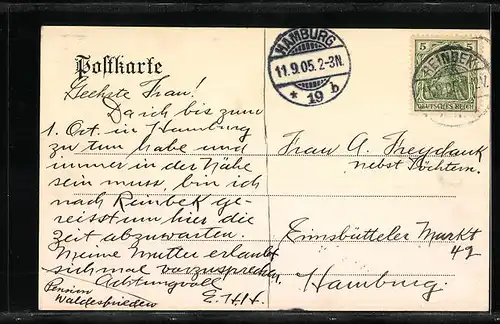 Postkarte
HAMBURG
11.9.05. 2-3N.
* 19 b
5 5
REINBEK
DEUTSCHES REICH
Geehrte Frau!
Da ich bis zum
1. Oct. in Hamburg
zu tun habe und
immer in der Nähe
sein muss, bin ich
nach Reinbek ge-
reist um hier die
Zeit abzuwarten.
Meine Mutter erlaubt
sich mal vorzusprechen.
Achtungsvoll
E. H.
Pension
Waldesfrieden
Frau A. Freydank
nebst Töchtern.
Eimsbütteler Markt
42
Hamburg.